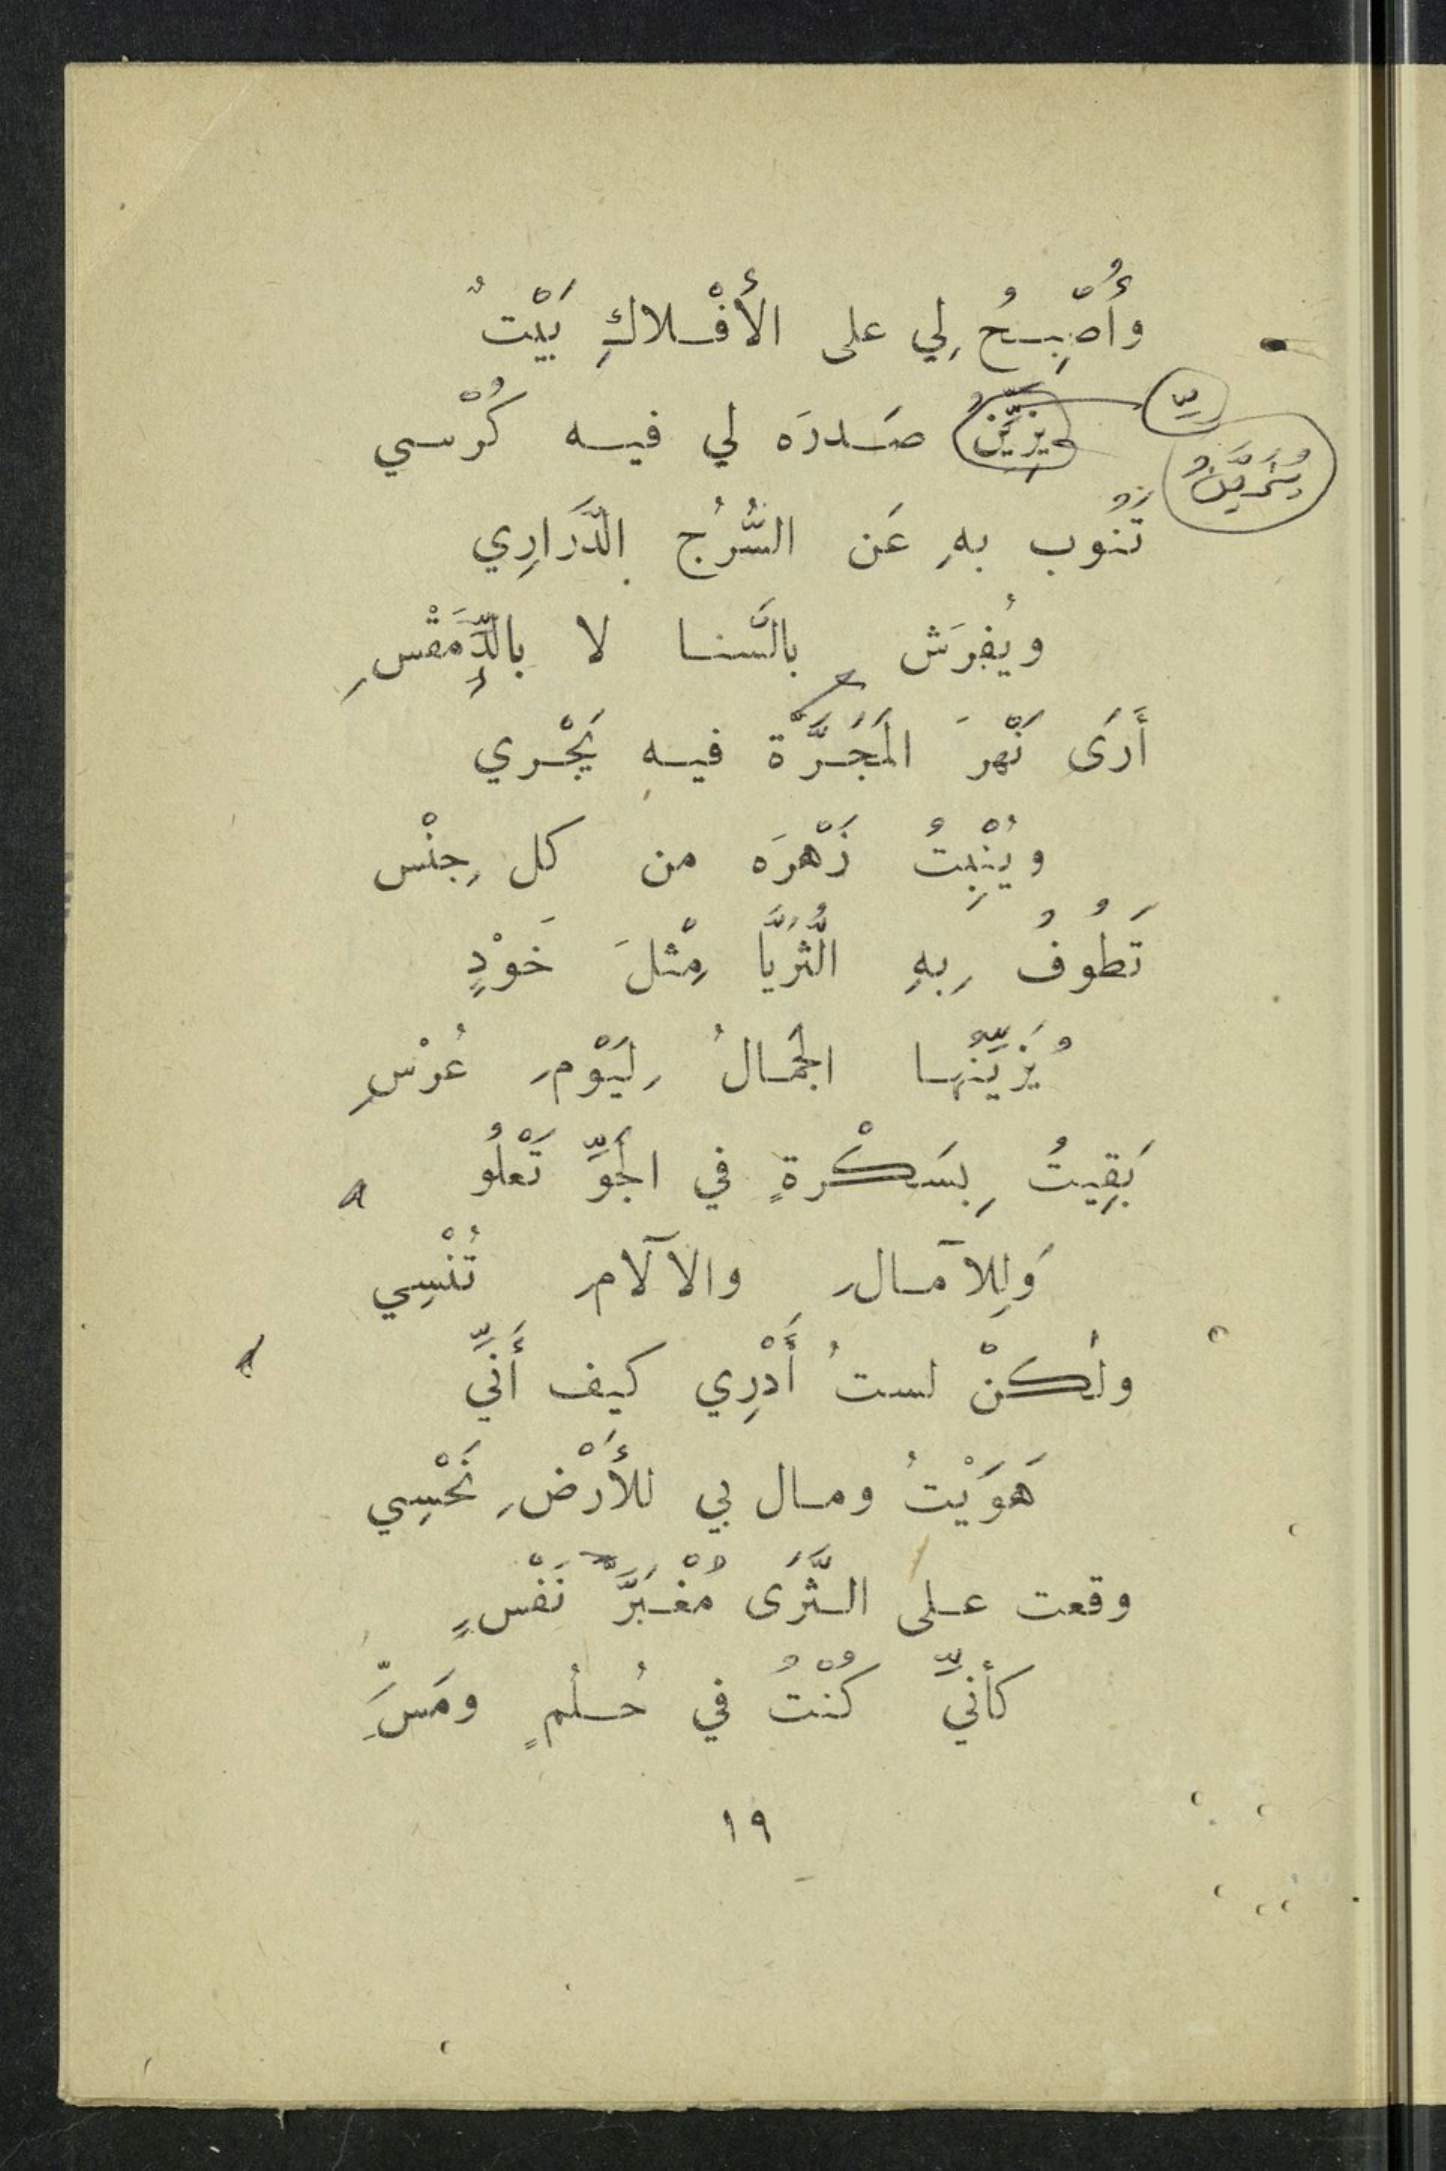 وأُصْبِحُ لِي على الأَفْلاكِ بَيْتٌ
يُزيِّنُ صَدرَه لي فيه كُرْسي
يُزَيِّنُ
تَنُوب بهِ عَن السُّرُج الدَّرَارِي
ويُفرَش بالسَّنا لا بالدِّمَقْسِ
أَرَى نَهْرَ المَجَرَّة فيه يَجْري
ويُنْبِتُ زَهْرَه من كل جِنْس
تَطُوفُ بِهِ الثُّرَيَّا مِثْلَ خَوْدٍ
يُزَيِّنُها الجَمالُ لِيَوْمِ عُرْسِ
بَقِيتُ بِسَكْرةٍ في الجَوِّ تَعْلُو
وَلِلآمالِ والآلامِ تُنْسِي
ولٰكنْ لستُ أَدْرِي كيف أَنِّي
هَوَيْتُ ومال بي للأَرْضِ نَحْسِي
وقعت على الثَّرَى مُغْبَرَّ نَفْسٍ
كأنيِّ كُنْتُ في حُلُمٍ ومَسِّ
١٩